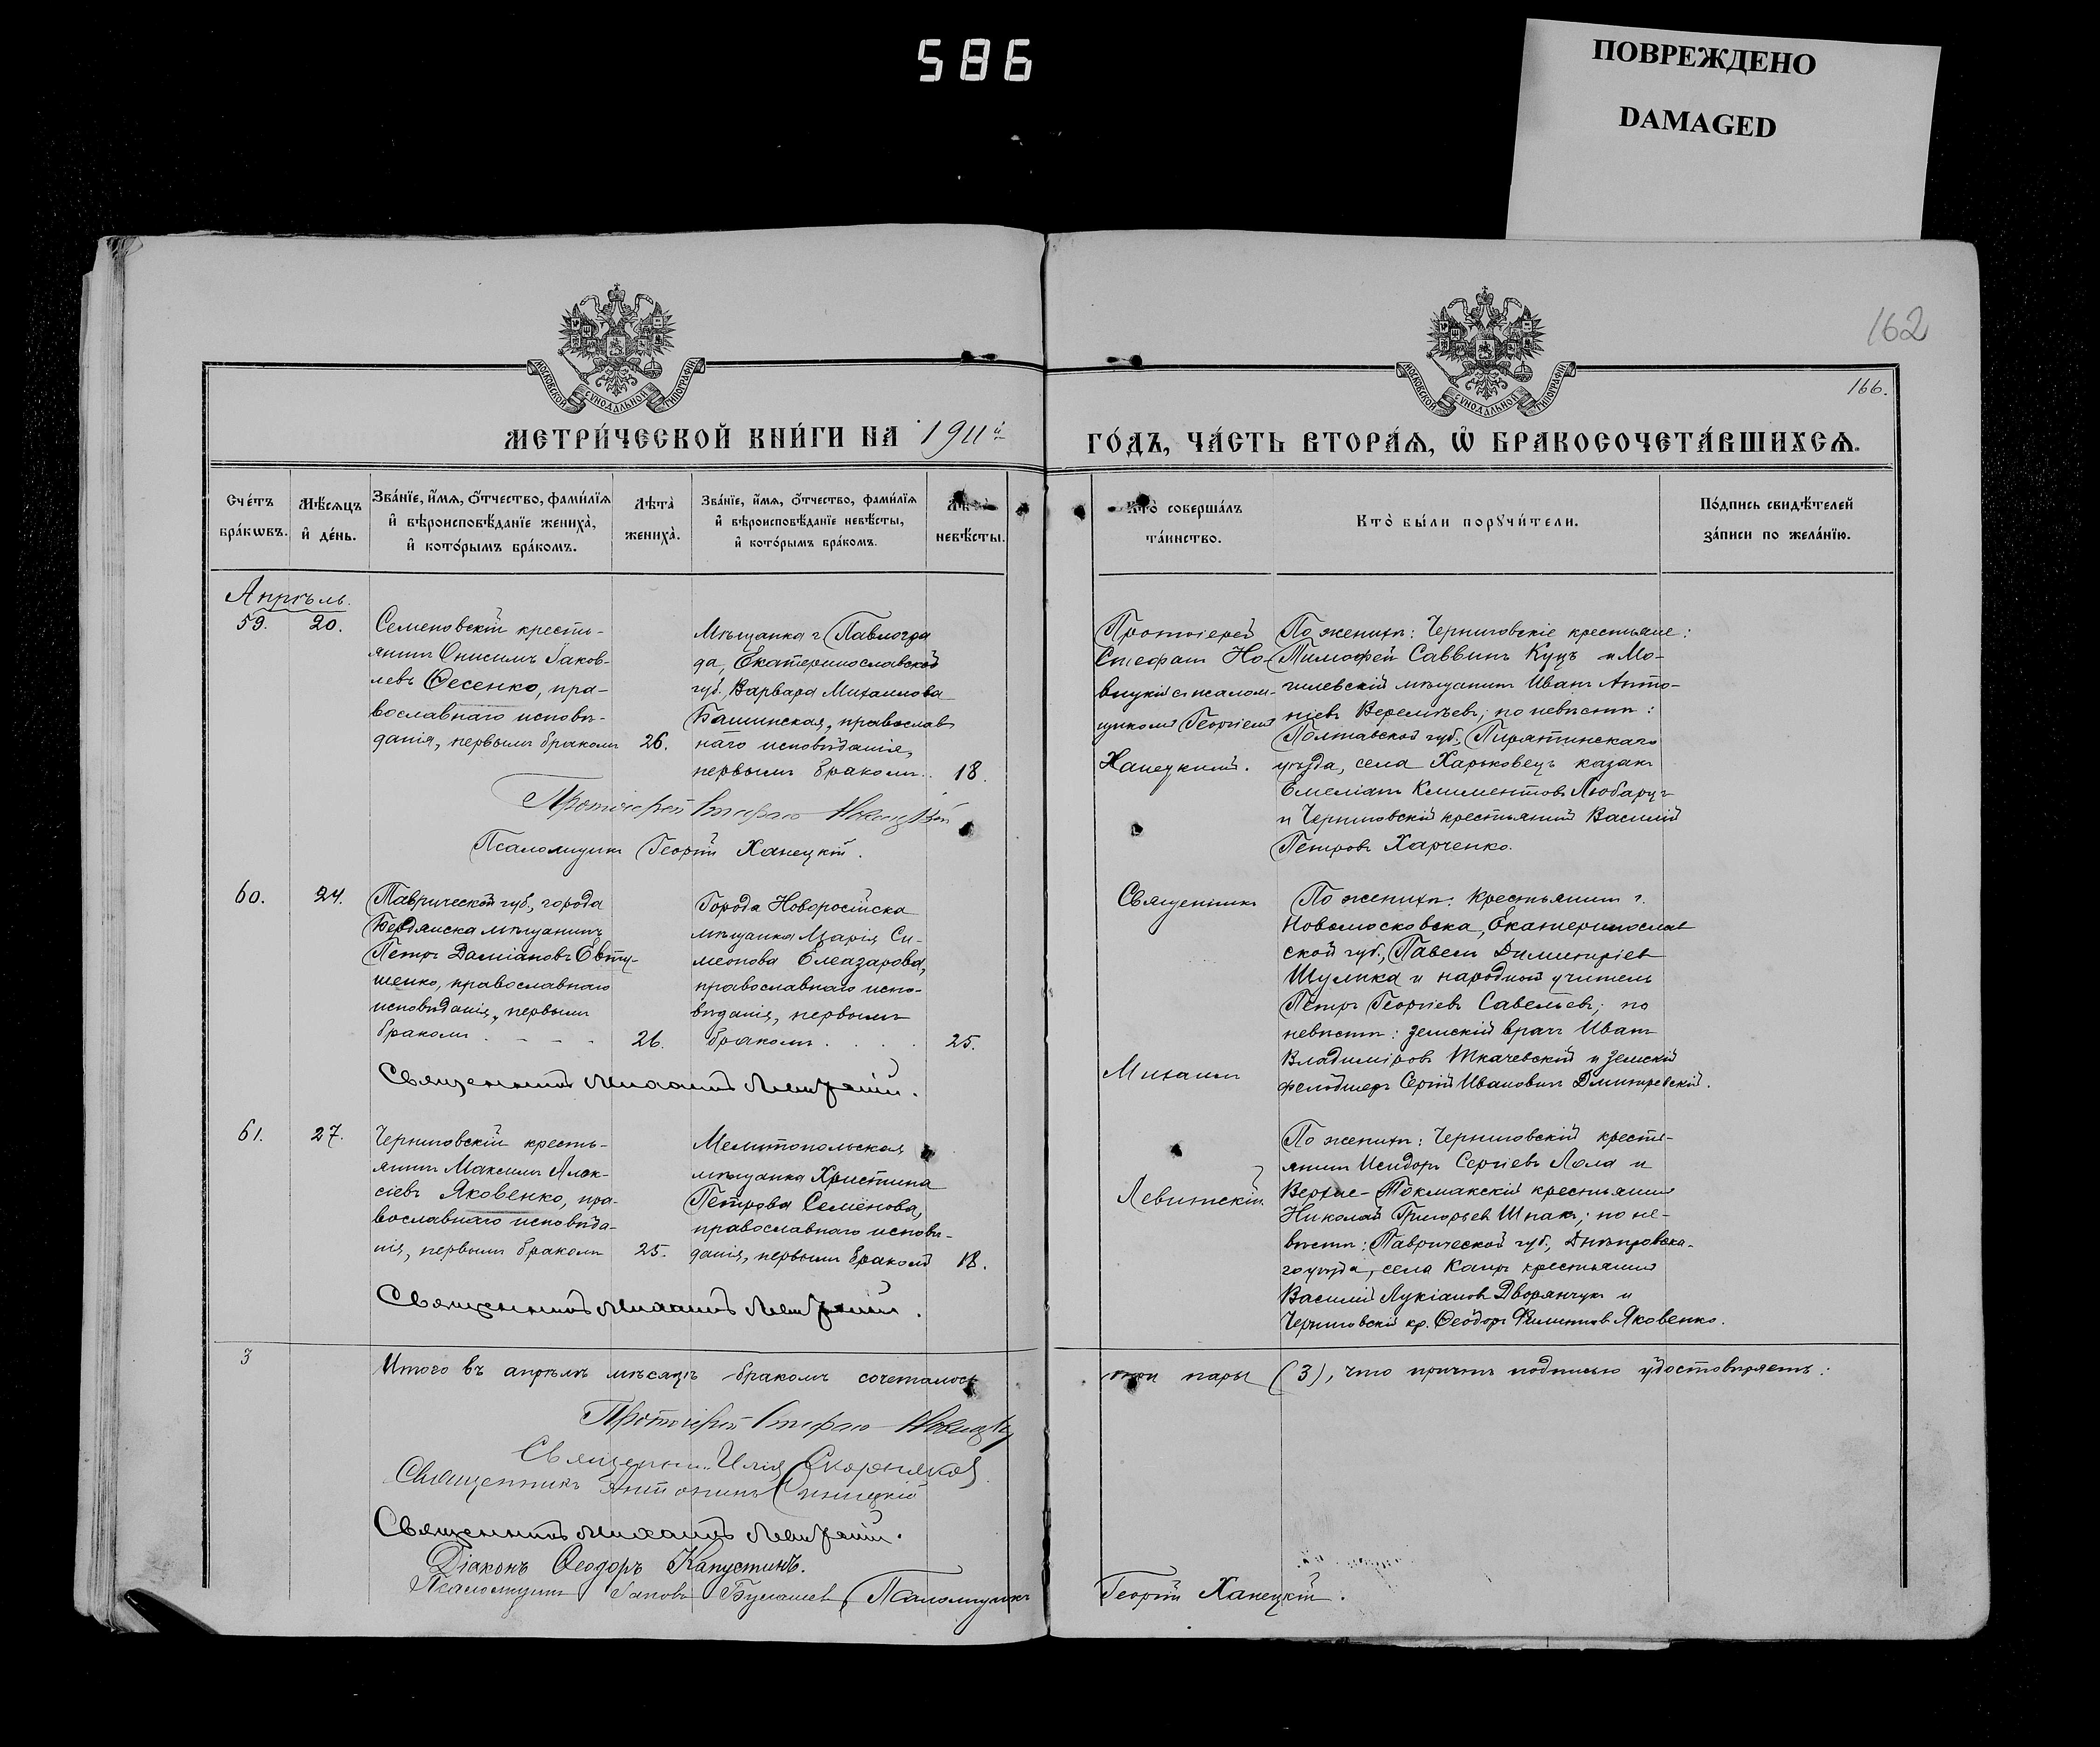 586
ПОВРЕЖДЕНО
DAMAGED
162
166.
МОСКОВСКОЙ СУНОДАЛЬНОЙ ТИПОГРАФІИ
МОСКОВСКОЙ СУНОДАЛЬНОЙ ТИПОГРАФІИ
МЕТРИ́ЧЕСКОЙ КНИ́ГИ НА 1911й
ГО́ДЪ, ЧА́СТЬ ВТОРА́Я, Ѽ БРАКОСОЧЕТА́ВШИХСѦ.
Сче́тъ бра́кѡвъ.
Мѣ́сѧцъ и҆ де́нь.
Зва́нїе, и҆́мѧ, ѻ҆́тчество, фами́лїѧ
и҆ вѣроисповѣ́данїе жениха̀,
и҆ кото́рымъ бра́комъ.
Лѣта̀ жениха̀.
Зва́нїе, и҆́мѧ, ѻ҆́тчество, фами́лїѧ
и҆ вѣроисповѣ́данїе невѣ́сты,
и҆ кото́рымъ бра́комъ.
невѣ́сты.
Кто̀ соверша́лъ
та́инство.
Кто̀ бы́ли порꙋчи́тели.
По́дпись свидѣ́телей
за́писи по жела́нїю.
Апрѣль.
59. 20.
Семеновскій крестья-
нинъ Онисимъ Іаков-
левъ Ѳесенко, пра-
вославнаго исповѣ-
данія, первымъ бракомъ 26.
Мѣщанка г. Павлогра
да, Екатеринославской
губ., Варвара Михаилова
Башинская, православ
наго исповѣданія,
первымъ бракомъ. 18.
Протоіерей Стефанъ Новицкій
Псаломщикъ Георгій Ханецкій.
Протоіерей
Стефанъ Но-
вицкій съ псалом-
щикомъ Георгіемъ
Ханецкимъ.
По женихѣ: Черниговскіе крестьяне:
Тимофей Саввинъ Куцъ и Мо-
гилевскій мѣщанинъ Иванъ Анто-
ніевъ Веремѣевъ; по невѣстѣ:
Полтавской губ., Пирятинскаго
уѣзда, села Харьковецъ казакъ
Емеліанъ Климентовъ Любарцъ
и Черниговскій крестьянинъ Василій
Петровъ Харченко.
60. 24.
Таврической губ., города
Бердянска мѣщанинъ
Петръ Даміановъ Евту-
шенко, православнаго
исповѣданія, первымъ
бракомъ . - - - 26.
Города Новоросійска
мѣщанка Марія Си-
меонова Елеазарова,
православнаго испо-
вѣданія, первымъ
бракомъ . . . . 25.
Священникъ Михаилъ Левитскій.
Священникъ
Михаилъ
Левитскій.
По женихѣ: крестьянинъ г.
Новомосковска, Екатеринослав
ской губ., Павелъ Димитріев
Шулика и народный учитель
Петръ Георгіевъ Савельевъ; по
невѣстѣ: земскій врачъ Иванъ
Владиміровъ Ткачевскій и земскій
фельдшеръ Сергій Ивановичъ Дмитревскій.
61. 27.
Черниговскій кресть-
янинъ Максимъ Алек-
сіевъ Яковенко, пра-
вославнаго исповѣда-
нія, первымъ бракомъ 25.
Мелитопольская
мѣщанка Христина
Петрова Семенова,
православнаго исповѣ-
данія, первымъ бракомъ 18.
Священникъ Михаилъ Левитскій.
По женихѣ: Черниговскій крестья-
нинъ Исидоръ Сергіевъ Лола и
Верхне-Токмакскій крестьянинъ
Николай Григорьев Шпакъ; по не-
вѣстѣ: Таврической губ., Днѣпровска-
го уѣзда, села Каиръ крестьянинъ
Василій Лукіановъ Дворянчук и
Черниговскій кр. Ѳеодоръ Филиповъ Яковенко.
3
Итого въ апрѣлѣ мѣсяцѣ бракомъ сочеталось
три пары (3), что причтъ подписью удостовѣряетъ:
Протоіерей Стефанъ Новицкій
Священникъ Илія Скорняковъ
Священникъ Антонинъ Синицкій
Священникъ Михаилъ Левитскій.
Діаконъ Ѳеодоръ Капустинъ.
Псаломщикъ Іаковъ Булашев, Псаломщикъ
Георгій Ханецкій.